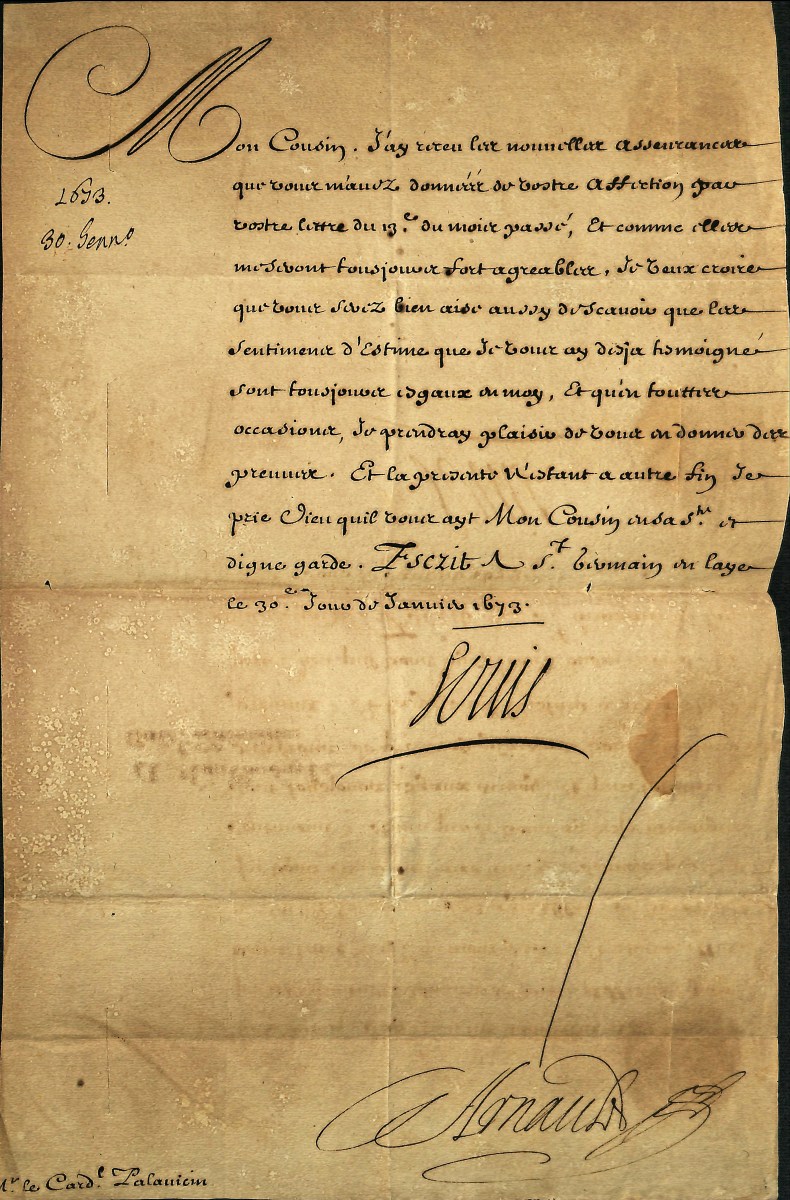 Mon Cousin. J'ay receu les nouvelles asseurances
1673.
30. Genn.º
que vous m'avez donnéés de vostre affection par
vostre lettre du 13.e du mois passé, Et comme elles
me seront tousjours fort agreables, Je veux croire
que vous serez bien aise aussy de scavoir que les
sentimens d'Estime que Je vous ay desja tesmoigné
sont tousjours esgaux en moy, Et qu'en touttes
occasions, Je prendray plaisir de vous en donner des
preuves. Et la presente n'estant a autre fin Je
prie Dieu quil vous ayt Mon Cousin en sa S.te et
digne garde. Escrit A S.t Germain en laye
le 30.e Jour de Janvier 1673.
Louis
Arnauld
Mr. le Card.l Palavicin